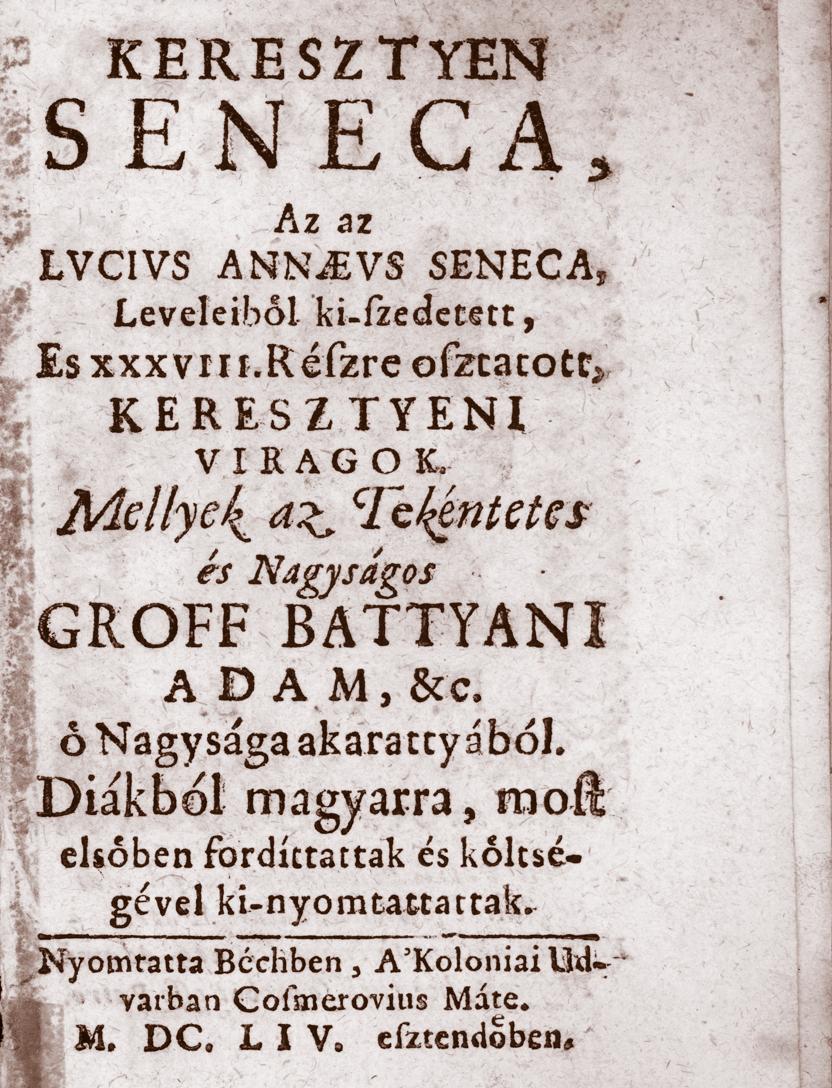 KERESZTYEN
SENECA,
Az az
LVCIVS ANNÆVS SENECA,
Leveleiboͤl ki-ſzedetett,
Es XXXVIII. Réſzre oſztatott,
KERESZTYENI
VIRAGOK.
Mellyek az Tekéntetes
és Nagyságos
GROFF BATTYANI
ADAM, &c.
oͤ Nagysága akarattyából.
Diákból magyarra, moſt
elsoͤben fordíttattak és koͤltsé-
gével ki-nyomtattattak.
Nyomtatta Béchben, A'Koloniai Ud-
varban Coſmerovius Máte.
M. DC. LIV. eſztendoͤben.